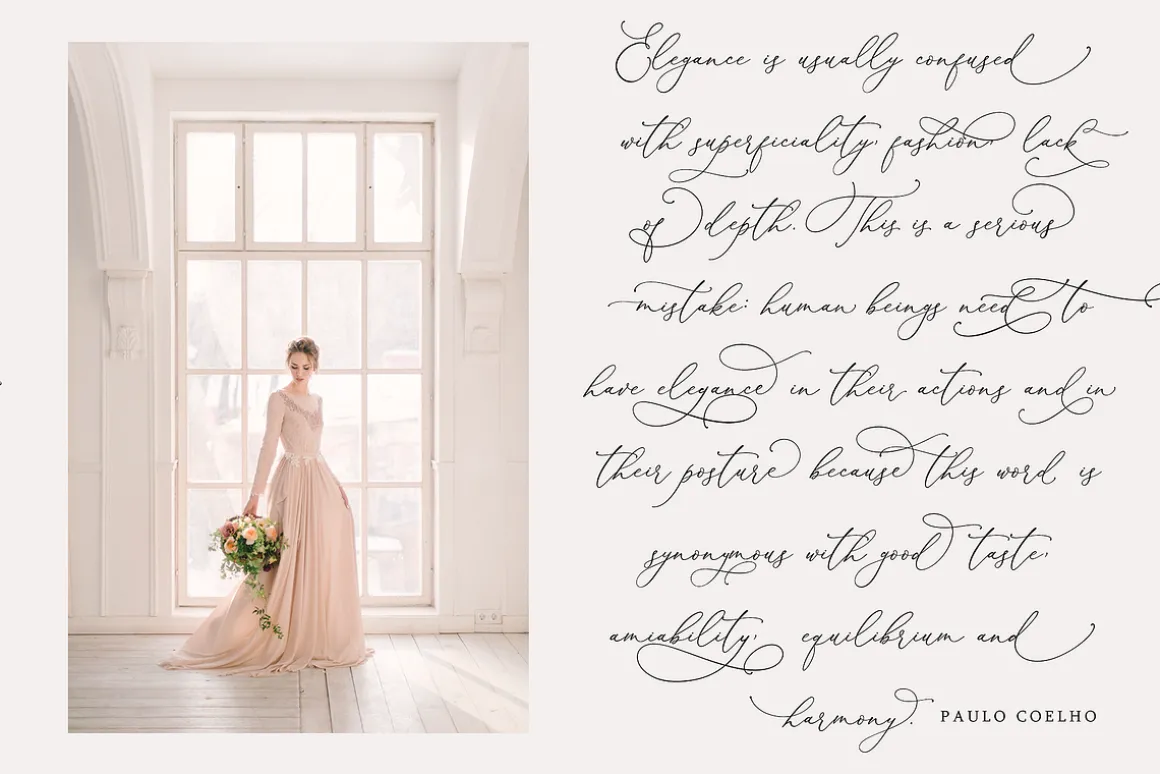 Elegance is usually confused
with superficiality, fashion, lack
of depth. This is a serious
mistake: human beings need to
have elegance in their actions and in
their posture because this word is
synonymous with good taste,
amiability, equilibrium and
harmony. PAULO COELHO